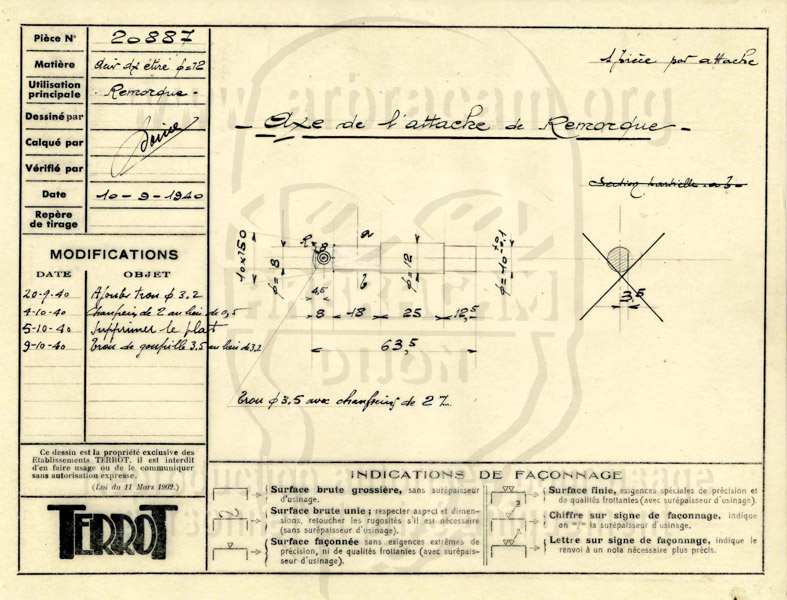 Pièce N° 20887
Matière Acier dx étiré φ=12
Utilisation principale Remorque
Dessiné par
Calqué par
Vérifié par
Date 10-9-1940
Repère de tirage
MODIFICATIONS
DATE OBJET
20-9-40 Ajouter trou φ 3.2
4-10-40 Chanfrein de 2 au lieu de 0,5
5-10-40 Supprimer le plat
9-10-40 Trou de goupille 3.5 au lieu de 3,2
Ce dessin est la propriété exclusive des
Etablissements TERROT, il est interdit
d'en faire usage ou de le communiquer
sans autorisation expresse.
(Loi du 11 Mars 1902.)
TERROT
1 pièce par attache
Axe de l'attache de Remorque
Section partielle a b
10x150
φ=8
R
8
a
b
φ=12
φ=10
4,5
8 18 25 12,5
63,5
3,5
Trou φ 3,5 avec chanfreins de 2 %
INDICATIONS DE FAÇONNAGE
Surface brute grossière, sans surépaisseur
d'usinage.
Surface brute unie ; respecter aspect et dimen-
sions, retoucher les rugosités s'il est nécessaire
(sans surépaisseur d'usinage).
Surface façonnée sans exigences extrêmes de
précision, ni de qualités frottantes (avec surépais-
seur d'usinage).
Surface finie, exigences spéciales de précision et
de qualités frottantes (avec surépaisseur d'usinage).
Chiffre sur signe de façonnage, indique
en m/m la surépaisseur d'usinage.
Lettre sur signe de façonnage, indique le
renvoi à un nota nécessaire plus précis.